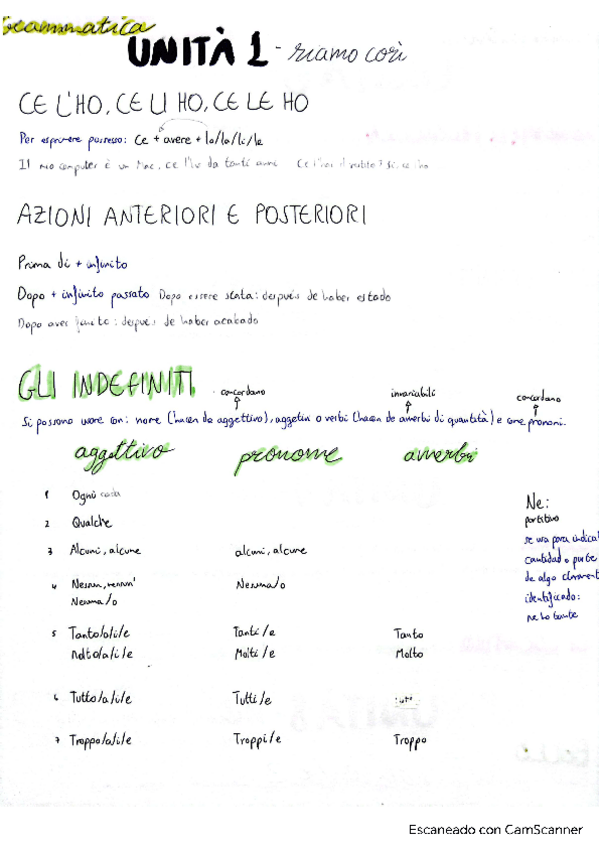 Grammatica
UNITÀ 1 - siamo così
CE L'HO, CE LI HO, CE LE HO
Per esprimere possesso: Ce + avere + lo/la/li/le
Il mio computer è un Mac, ce l'ho da tanti anni Ce l'hai il
AZIONI ANTERIORI E POSTERIORI
Prima di + infinito
Dopo + infinito passato Dopo essere stata: después de haber estado
Dopo aver finito: después de haber acabado
GLI INDEFINITI
concordano invariabili concordano
Si possono usare con: nome (hacen de aggettivo), aggettivi o verbi (hacen de avverbi di quantità) e come pronomi.
aggettivo pronome avverbi
1 Ogni
2 Qualche
3 Alcuni, alcune alcuni, alcune
4 Nessun, nessun'
Nessuna/o Nessuna/o
5 Tanto/a/i/e Tanti/e Tanto
Molto/a/i/e Molti/e Molto
6 Tutto/a/i/e Tutti/e
7 Troppo/a/i/e Troppi/e Troppo
Ne:
partitivo
se usa para indica
cantidad o parte
de algo claramente
identificado:
ne ho
Escaneado con CamScanner